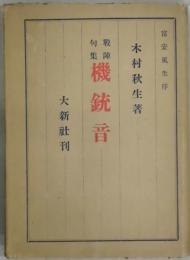 富安風生序
木村秋生著
戰陣句集
機銃音
大新社刊